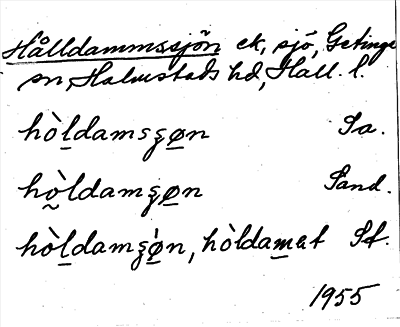 Hålldammssjön ek, sjö, Getinge
sn, Halmstads hd, Hall. l.
hòldamsʒøn Sa.
hòldamʒøn Sand.
hòldamʒøn, hòldamat St.
1955